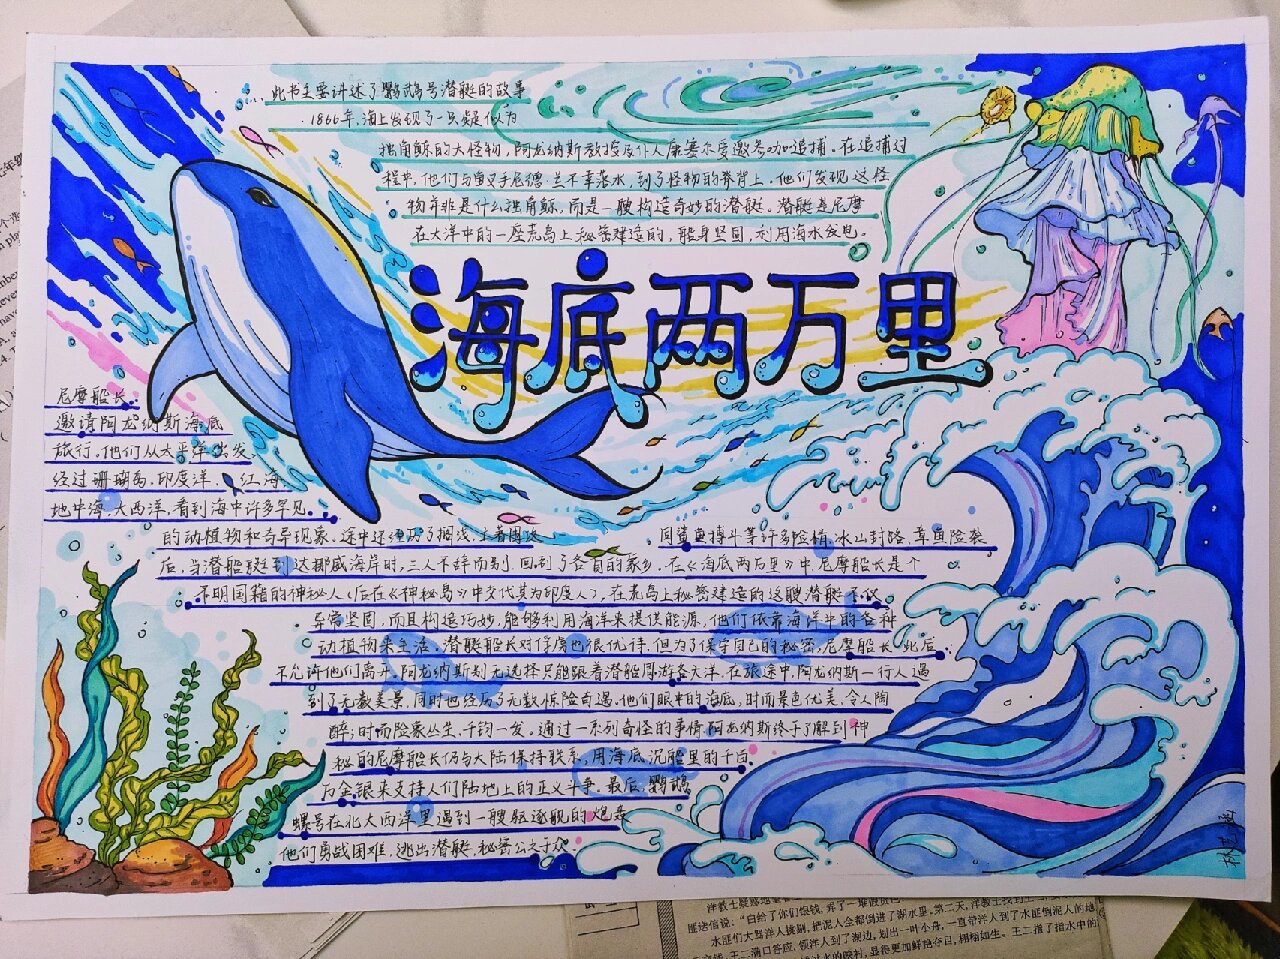 此书主要讲述了鹦鹉号潜艇的故事
1866年,海上发现了一只疑似为
独角鲸的大怪物,阿龙纳斯教授及仆人康塞尔受邀参加追捕。在追捕过
程中,他们与鱼叉手尼德·兰不幸落水,到了怪物的脊背上。他们发现这怪
物并非是什么独角鲸,而是一艘构造奇妙的潜艇。潜艇是尼摩
在大洋中的一座荒岛上秘密建造的,艇身坚固,利用海水发电。
海底两万里
尼摩船长
邀请阿龙纳斯海底
旅行。他们从太平洋出发,
经过珊瑚岛、印度洋、红海、
地中海、大西洋,看到海中许多罕见
的动植物和奇异现象。途中还经历了搁浅、土著围攻、
同鲨鱼搏斗等许多险情,冰山封路、章鱼险袭
后,当潜艇驶到达挪威海岸时,三人不辞而别,回到了各自的家乡。在《海底两万里》中尼摩船长是个
不明国籍的神秘人(后在《神秘岛》中交代其为印度人),在荒岛上秘密建造的这艘潜艇不仅
异常坚固,而且构造巧妙,能够利用海洋来提供能源,他们依靠海洋中的各种
动植物来生活。潜艇船长对俘虏也很优待,但为了保守自己的秘密,尼摩船长从此后
不允许他们离开。阿龙纳斯别无选择只能跟着潜船周游各大洋。在旅途中,阿龙纳斯一行人遇
到了无数美景,同时也经历了无数惊险奇遇。他们眼中的海底,时而景色优美、令人陶
醉;时而险象丛生、千钧一发。通过一系列奇怪的事情,阿龙纳斯终于了解到神
秘的尼摩船长仍与大陆保持联系,用海底沉船里的千百
万金银来支持人们陆地上的正义斗争。最后,鹦鹉
螺号在北大西洋里遇到一艘驱逐舰的炮轰
他们勇战困难,逃出潜艇,秘密公之于众